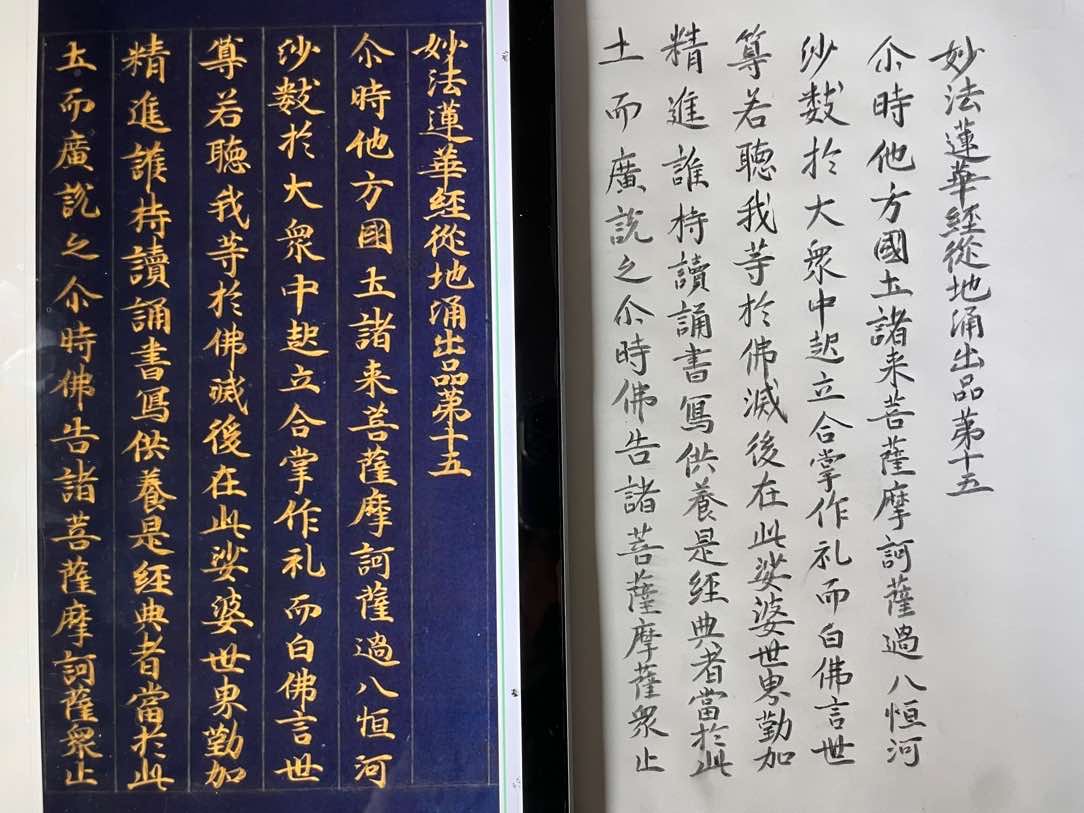 妙法蓮華經從地涌出品第十五
尒時他方國土諸来菩薩摩訶薩過八恒河
沙數於大衆中起立合掌作礼而白佛言世
尊若聽我等於佛滅後在此娑婆世界勤加
精進護持讀誦書寫供養是經典者當於此
土而廣說之尒時佛告諸菩薩摩訶薩衆止
妙法蓮華經從地涌出品第十五
尒時他方國土諸来菩薩摩訶薩過八恒河
沙數於大衆中起立合掌作礼而白佛言世
尊若聽我等於佛滅後在此娑婆世界勤加
精進護持讀誦書寫供養是經典者當於此
土而廣說之尒時佛告諸菩薩摩薩衆止